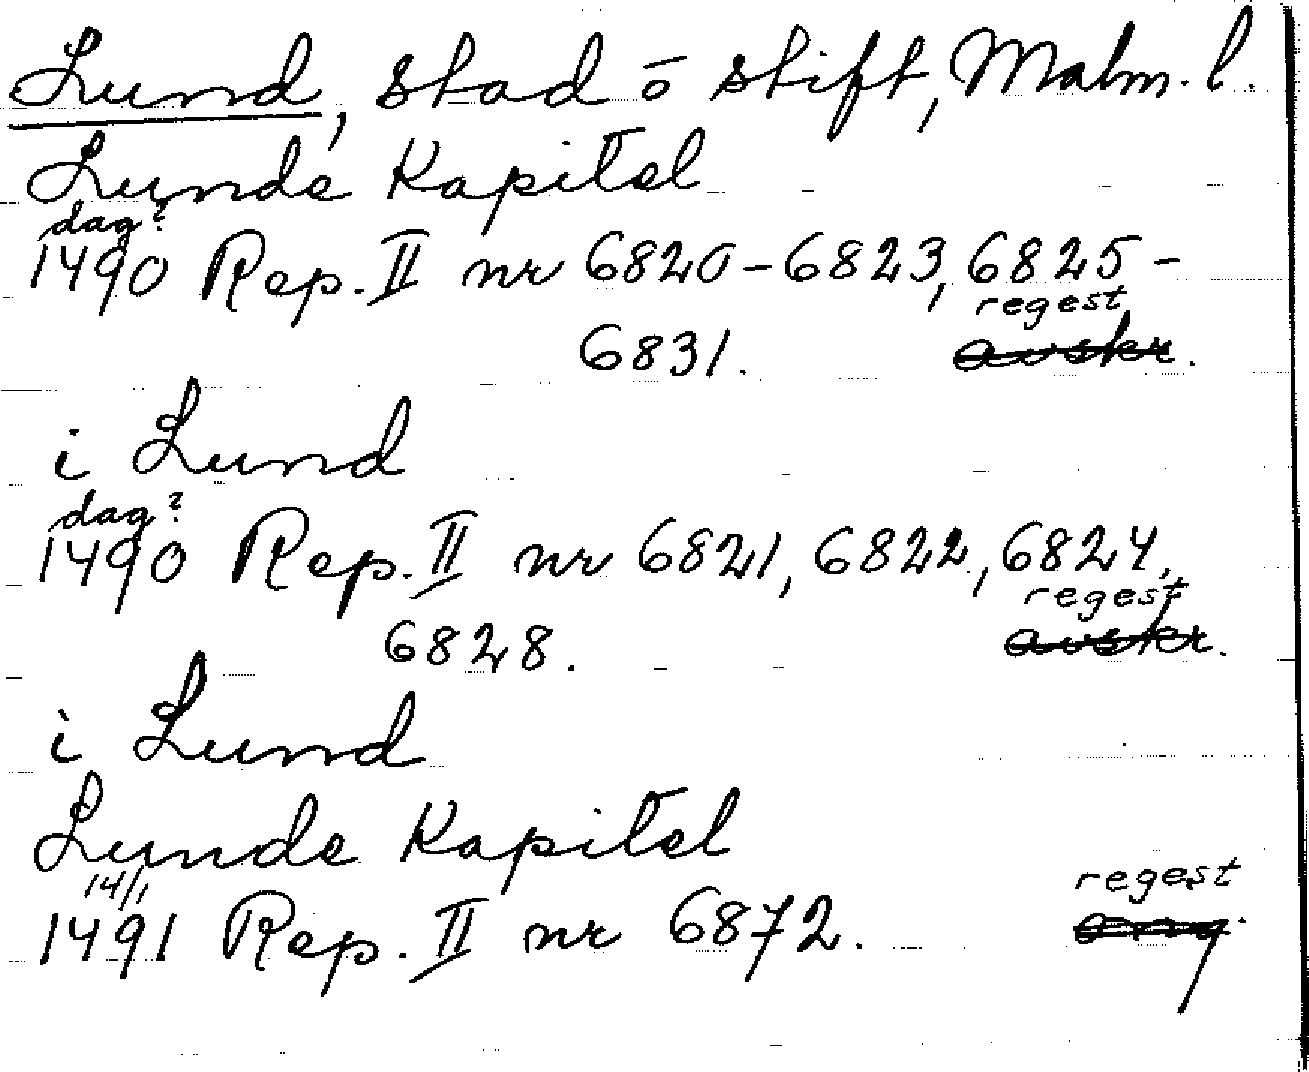 Lund, stad o stift, Malm. l.
Lunde Kapitel
dag?
1490 Rep. II nr 6820-6823, 6825-
regest
6831. avskr.
i Lund
dag?
1490 Rep. II nr 6821, 6822, 6824,
regest
6828. avskr.
i Lund
Lunde Kapitel
14/1 regest
1491 Rep. II nr 6872. orig.